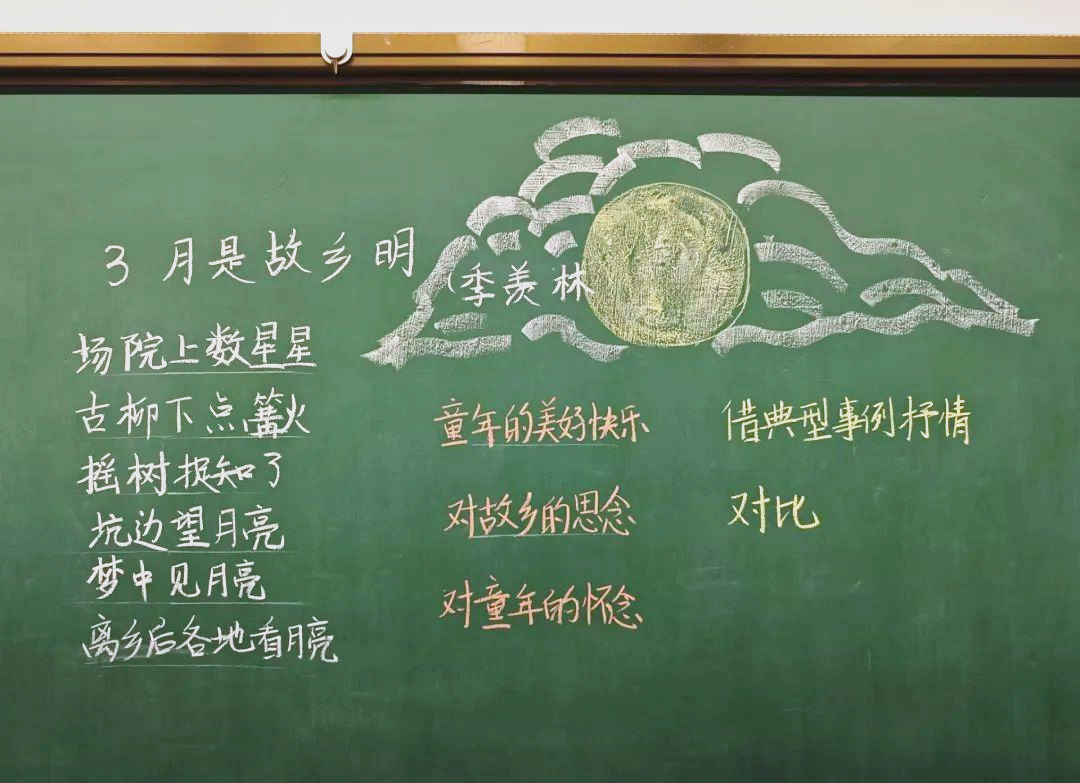 3 月是故乡明
(季羡林
场院上数星星
古柳下点篝火
摇树捉知了
坑边望月亮
梦中见月亮
离乡后各地看月亮
童年的美好快乐
对故乡的思念
对童年的怀念
借典型事例抒情
对比